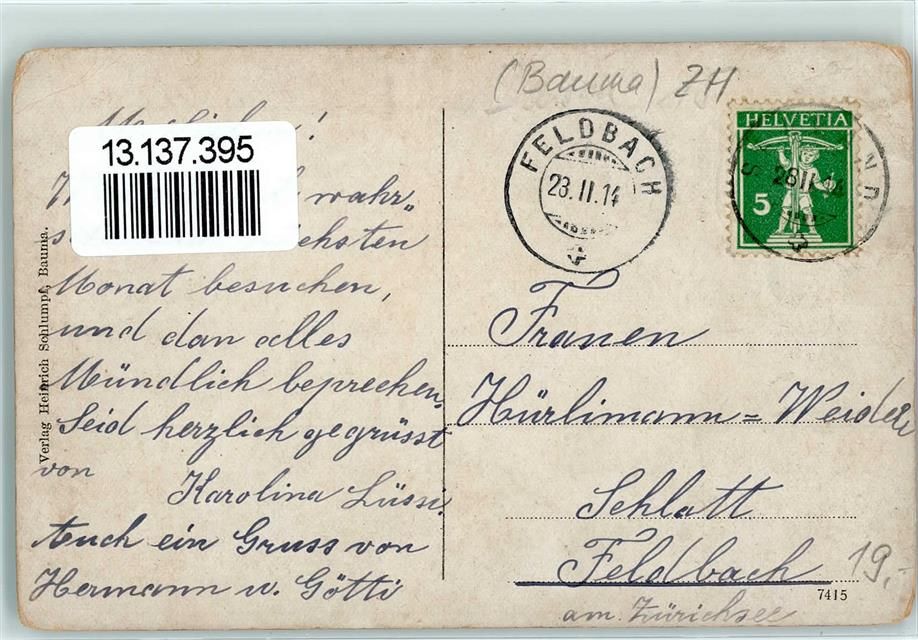 (Bauma) ZH
13.137.395
wahr„
chsten
Monat besuchen,
und dan alles
Mündlich besprechen.
Seid herzlich gegrüsst
von
Karolina Lüssi.
Auch ein Gruss von
Hermann u. Götti
Verlag Heinrich Schlumpf, Bauma.
FELDBACH
23.II.14
HELVETIA
5
Frauen
Hürlimann=Weideli
Schlatt
Feldbach
am Zürichsee
19,-
7415